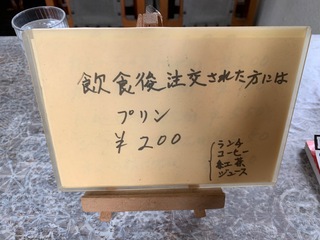 飲食後注交された方には
プリン
￥200
ランチ
コーヒー
紅茶
ジュース